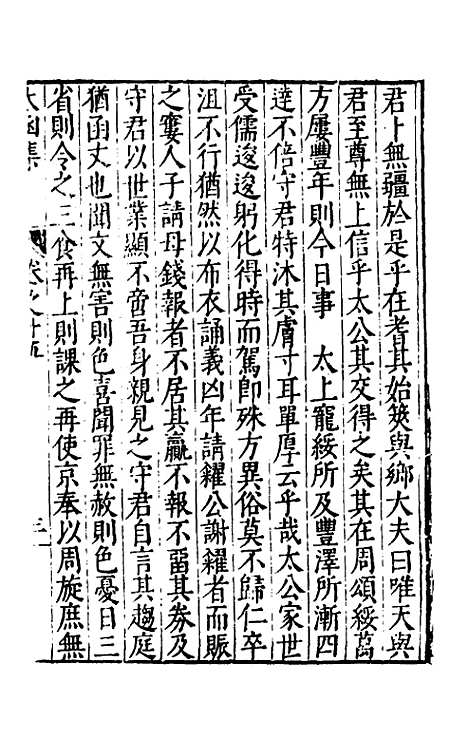 君卜無疆於是乎在耆其始筴與鄉大夫曰唯天與
君至尊無上信乎太公其交得之矣其在周頌綏萬
方屢豐年則今日事　太上寵綏所及豐澤所漸四
達不倍守君特沐其膚寸耳單厚云乎哉太公家世
受儒逡逡躬化得時而駕卽殊方異俗莫不歸仁卒
沮不行猶然以布衣誦義凶年請糴公謝糴者而賑
之窶人子請母錢報者不居其贏不報不畱其券及
守君以世業顯不啻吾身親見之守君自言其趨庭
猶函丈也聞文無害則色喜聞罪無赦則色憂日三
省則令之三食再上則課之再使京奉以周旋庶無
太函集　卷之十五　三